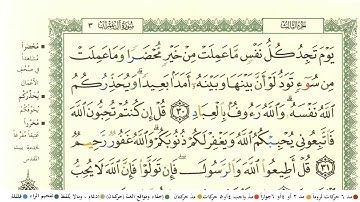 الجزء الثالث
سورة آل عمران ٣
يَوْمَ تَجِدُ كُلُّ نَفْسٍ مَّا عَمِلَتْ مِنْ خَيْرٍ مُّحْضَرًا وَمَا عَمِلَتْ
مِن سُوٓءٍ تَوَدُّ لَوْ أَنَّ بَيْنَهَا وَبَيْنَهُۥٓ أَمَدَۢا بَعِيدًا ۗ وَيُحَذِّرُكُمُ
ٱللَّهُ نَفْسَهُۥ ۗ وَٱللَّهُ رَءُوفُۢ بِٱلْعِبَادِ ٣٠ قُلْ إِن كُنتُمْ تُحِبُّونَ ٱللَّهَ
فَٱتَّبِعُونِى يُحْبِبْكُمُ ٱللَّهُ وَيَغْفِرْ لَكُمْ ذُنُوبَكُمْ ۗ وَٱللَّهُ غَفُورٌ رَّحِيمٌ
٣١ قُلْ أَطِيعُوا۟ ٱللَّهَ وَٱلرَّسُولَ ۖ فَإِن تَوَلَّوْا۟ فَإِنَّ ٱللَّهَ لَا يُحِبُّ
مُحْضَرًا
مشاهداً
في صحف
الأعمال
يُحَذِّرُكُم
يخوفكم
مُحَرَّرًا
لخدمة بيت
المقدس